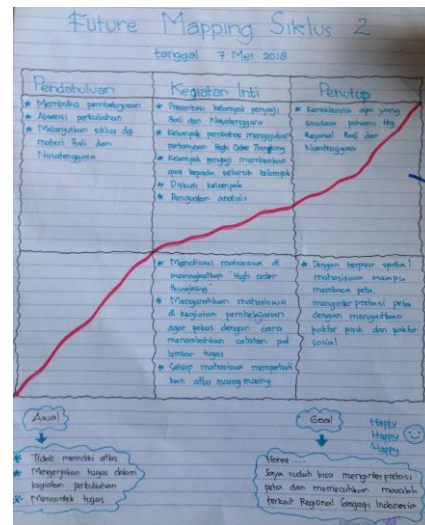 Future Mapping Siklus 2
tanggal 7 Mei 2018
Pendahuluan
* Membuka pembelajaran
* Absensi perkuliahan
* Melanjutkan siklus dg
materi Bali dan
Nusatenggara
Kegiatan Inti
* Presentasi kelompok penyaji
Bali dan Nusatenggara
* Kelompok pembahas mengajukan
pertanyaan High Order Thingking
* Kelompok penyaji memberikan
quiz kepada seluruh kelompok
* Diskusi kelompok
* Penguatan analisis
Penutup
* Karakteristik apa yang
saudara pahami ttg
Regional Bali dan
Nusatenggara
* Memotivasi mahasiswa di
meningkatkan "high order
thingking"
* Mengarahkan mahasiswa
di kegiatan pembelajaran
agar fokus dengan cara
menambahkan catatan pd
lembar tugas
* Setiap mahasiswa memperhati
kan atlas masing masing
* Dengan berpikir spatial
mahasiswa mampu
membaca peta,
menginterpretasi peta
dengan mengaitkan
faktor fisik dan faktor
sosial
Awal
* Tidak memiliki atlas
* Mengerjakan tugas dalam
kegiatan perkuliahan
* Mencontek tugas
Goal
Happy
Happy
Happy
Horee ....
Saya sudah bisa menginterpretasi
peta dan memecahkan masalah
terkait Regional Geografi Indonesia